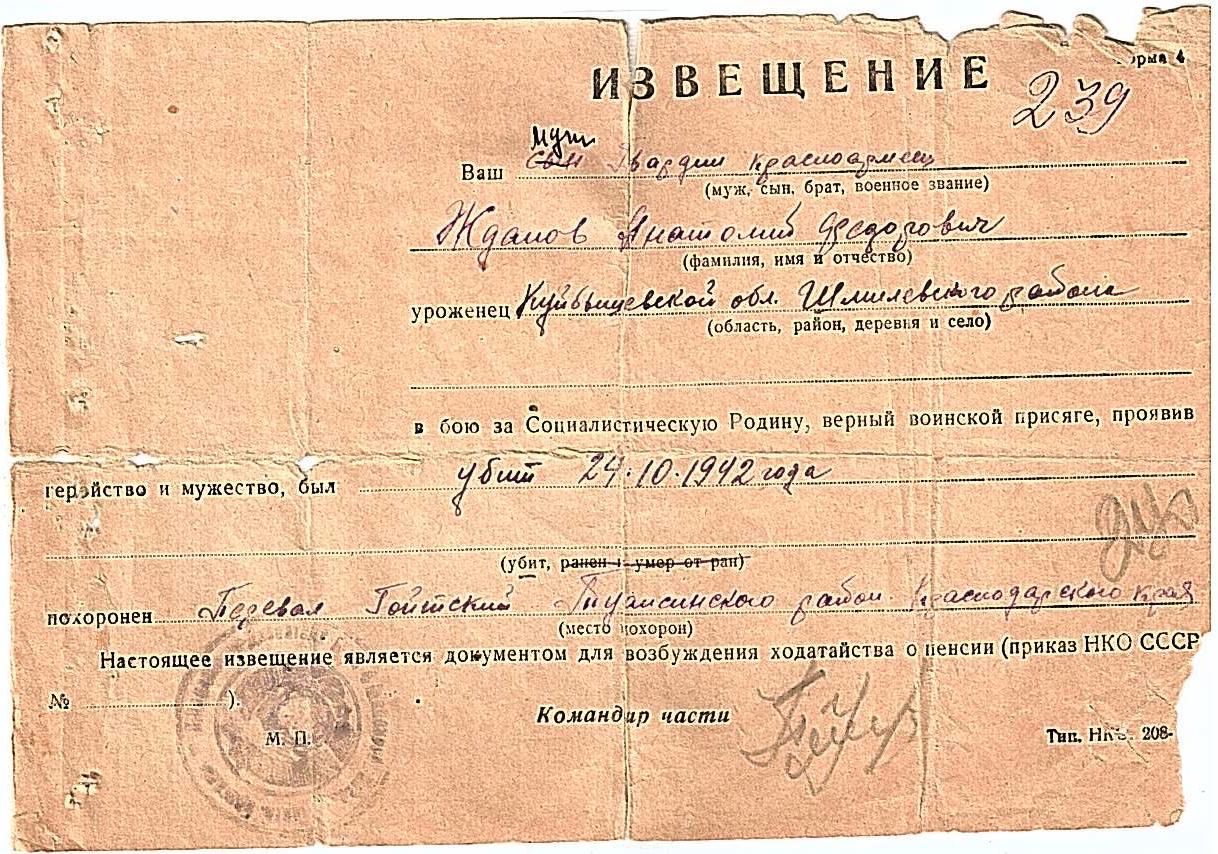 орма 4
ИЗВЕЩЕНИЕ
239
Муж
Ваш сын Гвардии красноармеец
(муж, сын, брат, военное звание)
Жданов Анатолий Федорович
(фамилия, имя и отчество)
уроженец Куйбышевской обл. района
(область, район, деревья и село)
в бою за Социалистическую Родину, верный воинской присяге, проявив
геройство и мужество, был убит 24.10.1942 года
(убит, ранен и умер от ран)
похоронен Перевал Гойтский Туапсинского район Краснодарского края
(место похорон)
Настоящее извещение является документом для возбуждения ходатайства о пенсии (приказ НКО СССР
№ ).
Командир части
М. П.
Тип. НКО. 208-